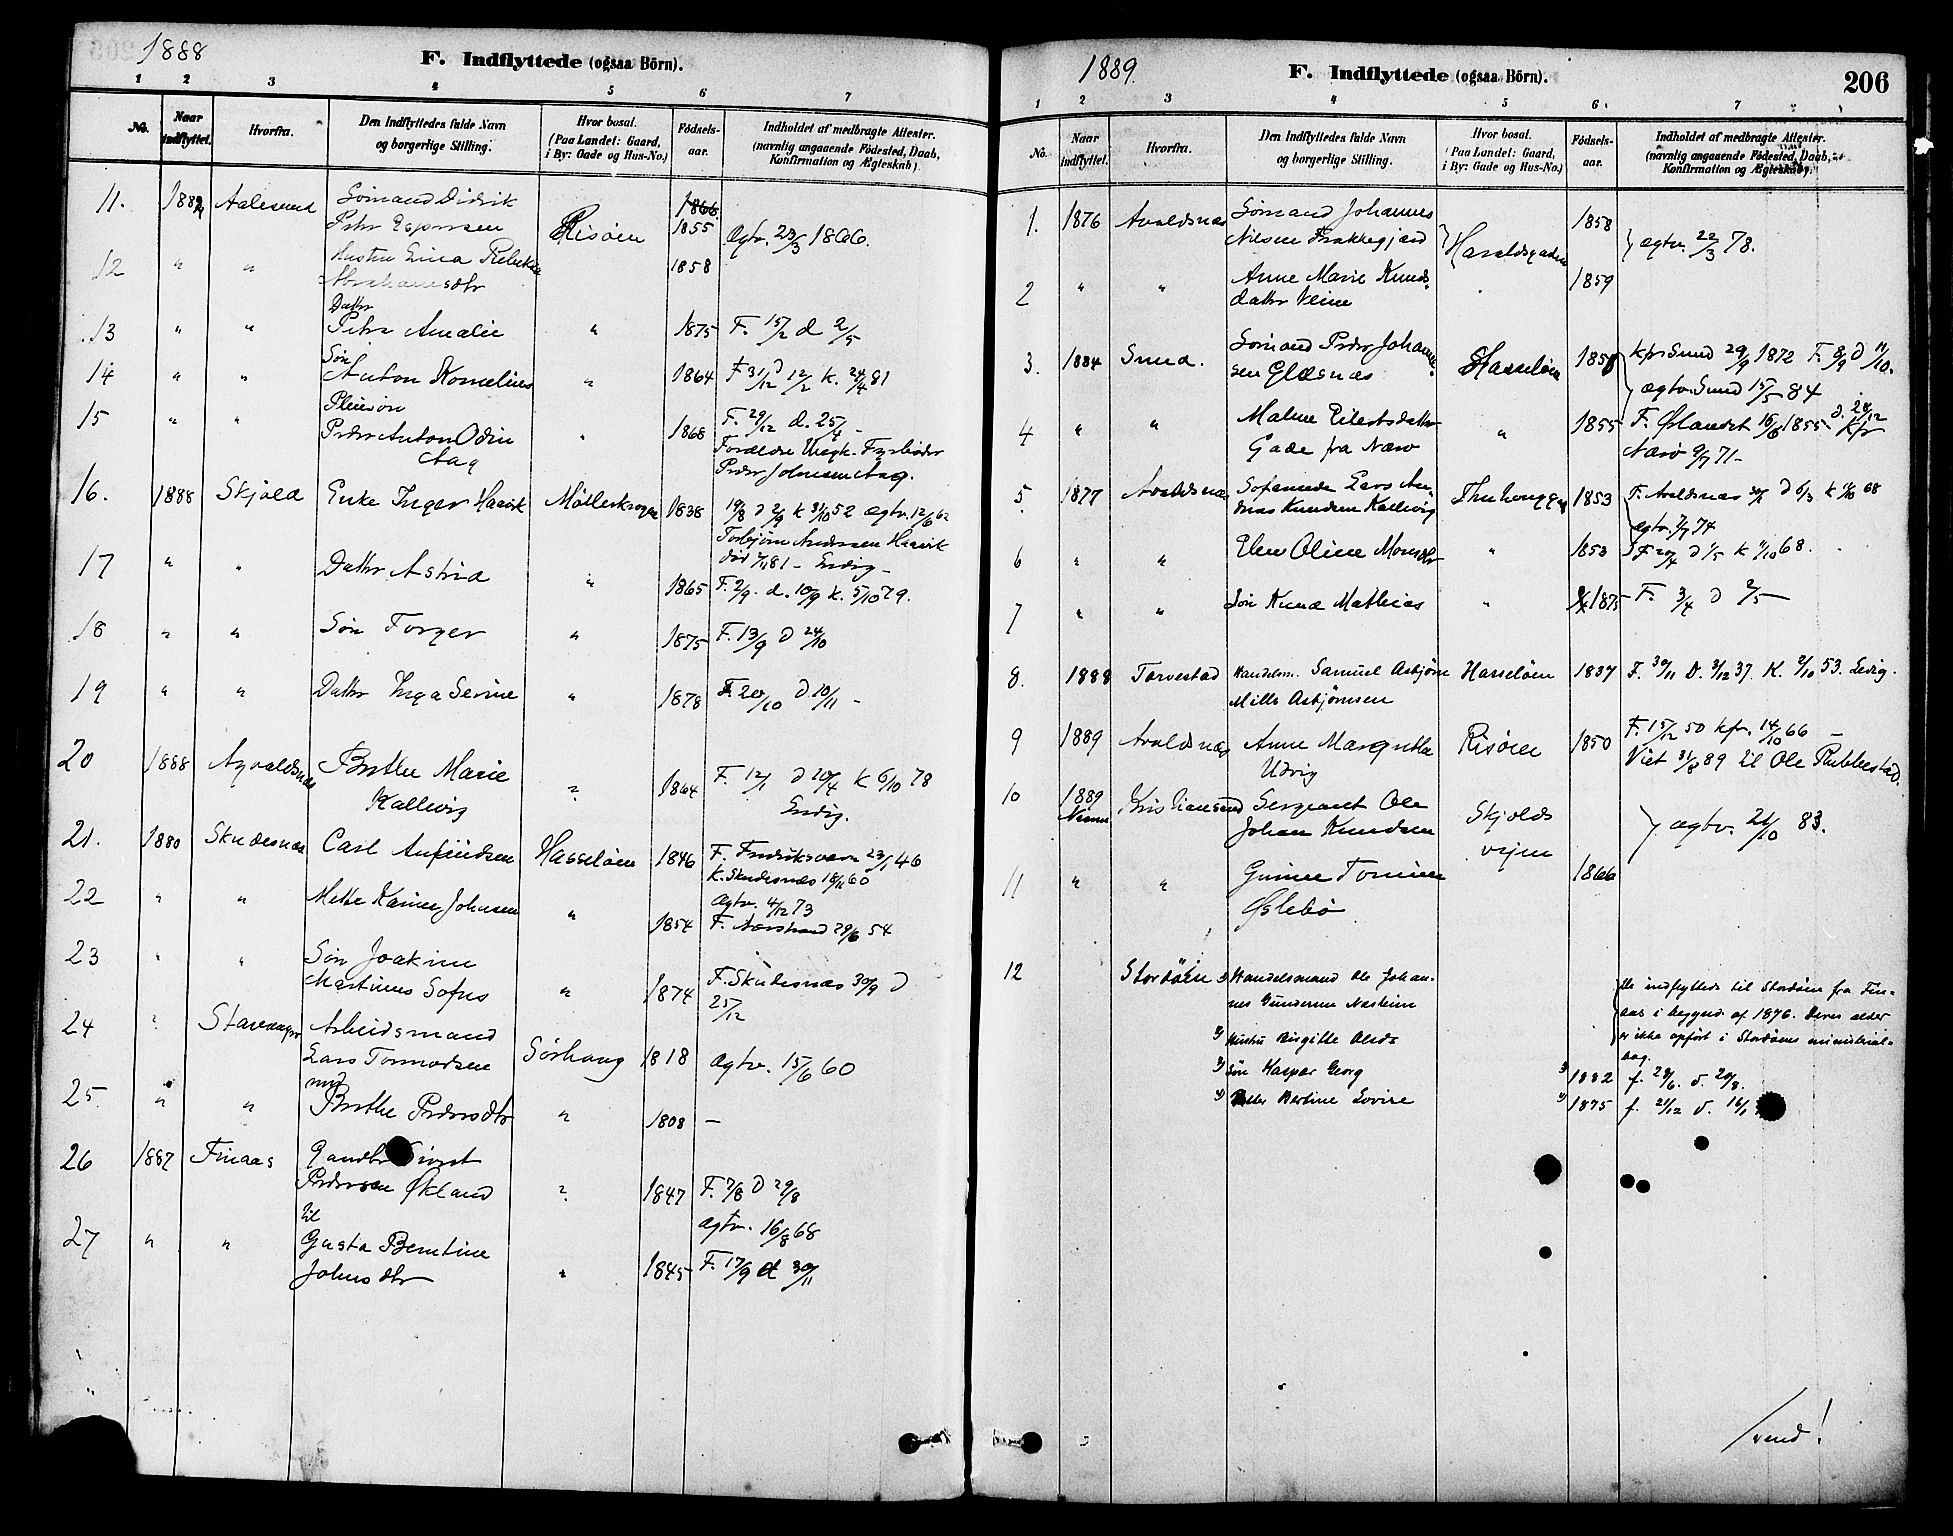 1888
F. Indflyttede (ogsaa Börn).
1 2 3 4 5 6 7
No. Naar indflyttet. Hvorfra. Den Indflyttedes fulde Navn og borgerlige Stilling. Hvor bosat. (Paa Landet: Gaard, i By: Gade og Hus-No.) Fødsels-aar. Indholdet af medbragte Attester. (navnlig angaaende Fødested, Daab, Konfirmation og Ægteskab).
11. Aalesund Sömand Didrik
Peder Espersen Risöen 1855 Ægtv. 23/3 1866.
12 " " Hustru Lina Rebekka 1858
Abrahamsdtr
Datter
13 " " Petra Amalie " 1875 F. 15/2 d 2/5
Sön
14 " " Anton Kornelius " 1864 F 31/12 D 12/2 K. 24/4 81
Pleiesön
15 " " Peder Anton Odin " 1868 F. 29/12 d. 25/4 –
Aag Forældre Fyrböder
Peder Johnsen Aag.
16. 1888 Skjold Enke Inger Haavik 1838 19/8 D 2/9 K 31/10 52 Ægtv. 12/6 62
Torbjörn Andersen Haavik
död 81 – Ledig –
17 " " Datter Astrid " 1865 F. 2/9 d. 10/9 K. 5/10 79.
18 " " Sön Torger " 1875 F. 13/9 D 24/10
19 " " Datter Inga Serine " 1878 F 20/10 D 10/11 –
20 1888 Agvaldsnæs Brithe Marie " 1864 F. 12/1 D 20/4 K 6/10 78
Kallevig Ledig.
21. 1880 Skudesnæs Carl Anfindsen Hasselöen 1846 F. Fredriksværn 23/1 46
K. Skudesnæs 18/11 60
Ægtv. 4/12 73
22 " " Mette Karine Johnsen " 1854 F. Nærstrand 29/6 54
23 " " Sön Joakim
Martinus Sofus " 1874 F. Skudesnæs 30/9 D
25/12
24 " Stavanger Arbeidsmand
Lars Tormodsen Sörhaug 1818 Ægtv. 15/6 60
med
25 " " Brithe Pedersdtr " 1808 –
26 1887 Finaas Sivert
Pedersen Økland " 1847 F. 7/8 D 29/8
til Ægtv. 16/8 68
27 " " Gusta Bentine
Johnsdtr " 1845 F. 17/9 d 30/11
1889.
F. Indflyttede (ogsaa Börn).
206
1 2 3 4 5 6 7
No. Naar indflyttet. Hvorfra. Den Indflyttedes fulde Navn og borgerlige Stilling. Hvor bosat. (Paa Landet: Gaard, i By: Gade og Hus-No.) Fødsels-aar. Indholdet af medbragte Attester. (navnlig angaaende Fødested, Daab, Konfirmation og Ægteskab).
1. 1876 Avaldsnæs Sömand Johannes 1858
Nilsen Frakkegjærd Haraldsgaden ægtv. 22/3 78.
2 " " Anne Marie Knuds- 1859
datter Veine
3. 1884 Sund. Sömand Peder Johanne- Hasselöen 1858 kfr Sund 29/9 1872 F. 8/9 D 11/10.
sen Glæsnæs ægtv. Sund 15/5 84
4 " " Malene Eilertsdatter " 1855 F. Ølandet 16/8 1855 d. 24/12 kfr
Gade fra Nærö Nærö 9/7 71 –
5. 1877 Avaldsnæs Sofamede Lars An- 1853 F. Avaldsnæs D 6/3 K 68
dreas Knudsen Kallevig ægtv. 7/7 74
6 " " Elen Oline Monsdtr " 1853 F 20/4 D 1/5 K 11/10 68.
7 " " Sön Knud Mathias " 1875 F. 3/4 D 2/5 –
8. 1888 Torvestad Handelsm. Samuel Asbjörn Hasselöen 1837 F. 30/11 D. 31/12 37. K. 2/10 53. Ledig.
Mills Asbjörnsen
9 1889 Avaldsnæs Anne Margrethe Risöen 1850 F. 15/12 50 kfr. 14/10 66 –
Udvig Viet 31/8 89 til Ole Rubbestad.
10 1889 Kristiansund Sergeant Ole Skjolds
Johan Knudsen veien ægtv. 21/10 83.
11 " " Gunne Tomine 1866
Øslebö
12 Stordöen 1) Handelsmand Ole Johan-
nes Gundersen Næsheim
2) Hustru Birgitte Olsdr
3) Sön Kaspar Georg 3) 1882 f. 28/6. d. 20/8.
4) Datter Bertine Lovise 4) 1875 f. 21/12 d. 16/1
De indflyttede til Stordöen fra Fin-
aas i begynd. af 1876. Deres alder
er ikke opfört i Stordöens ministerial-
bog.
vend!